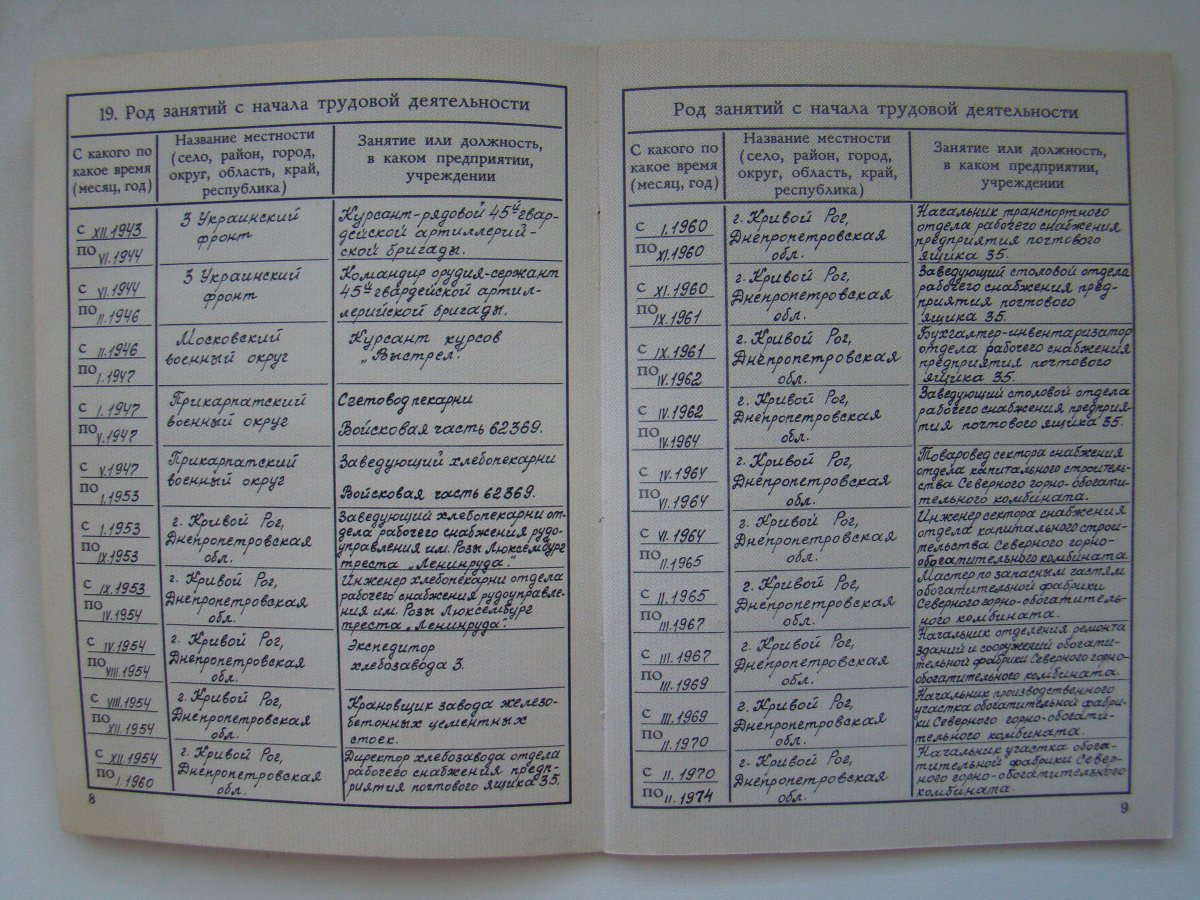 19. Род занятий с начала трудовой деятельности
С какого по
какое время
(месяц, год)
Название местности
(село, район, город,
округ, область, край,
республика)
Занятие или должность,
в каком предприятии,
учреждении
с XII.1943
по VI.1944
3 Украинский
фронт
Курсант-рядовой 45й гвар-
дейской артиллерий-
ской бригады.
с VI.1944
по II.1946
3 Украинский
фронт
Командир орудия-сержант
45й гвардейской артил-
лерийской бригады.
с II.1946
по I.1947
Московский
военный округ
Курсант курсов
„Выстрел".
с I.1947
по V.1947
Прикарпатский
военный округ
Счетовод пекарни
Войсковая часть 62369.
с V.1947
по I.1953
Прикарпатский
военный округ
Заведующий хлебопекарни
Войсковая часть 62369.
с I.1953
по IX.1953
г. Кривой Рог,
Днепропетровская
обл.
Заведующий хлебопекарни от-
дела рабочего снабжения рудо-
управления им. Розы Люксембург
треста „Ленинруда".
с IX.1953
по IV.1954
г. Кривой Рог,
Днепропетровская
обл.
Инженер хлебопекарни отдела
рабочего снабжения рудоуправле-
ния им. Розы Люксембург
треста „Ленинруда".
с IV.1954
по VIII.1954
г. Кривой Рог,
Днепропетровская
обл.
Экспедитор
хлебозавода 3.
с VIII.1954
по XII.1954
г. Кривой Рог,
Днепропетровская
обл.
Крановщик завода железо-
бетонных цементных
стоек.
с XII.1954
по I.1960
г. Кривой Рог,
Днепропетровская
обл.
Директор хлебозавода отдела
рабочего снабжения предп-
риятия почтового ящика 35.
8
Род занятий с начала трудовой деятельности
С какого по
какое время
(месяц, год)
Название местности
(село, район, город,
округ, область, край,
республика)
Занятие или должность,
в каком предприятии,
учреждении
с I.1960
по XI.1960
г. Кривой Рог,
Днепропетровская
обл.
Начальник транспортного
отдела рабочего снабжения
предприятия почтового
ящика 35.
с XI.1960
по IX.1961
г. Кривой Рог,
Днепропетровская
обл.
Заведующий столовой отдела
рабочего снабжения пред-
приятия почтового
ящика 35.
с IX.1961
по IV.1962
г. Кривой Рог,
Днепропетровская
обл.
Бухгалтер-инвентаризатор
отдела рабочего снабжения
предприятия почтового
ящика 35.
с IV.1962
по IV.1964
г. Кривой Рог,
Днепропетровская
обл.
Заведующий столовой отдела
рабочего снабжения предприя-
тия почтового ящика 35.
с IV.1964
по VI.1964
г. Кривой Рог,
Днепропетровская
обл.
Товаровед сектора снабжения
отдела капитального строитель-
ства Северного горно-обогати-
тельного комбината.
с VI.1964
по II.1965
г. Кривой Рог,
Днепропетровская
обл.
Инженер сектора снабжения
отдела капитального строи-
тельства Северного горно-
обогатительного комбината.
с II.1965
по III.1967
г. Кривой Рог,
Днепропетровская
обл.
Мастер по запасным частям
обогатительной фабрики
Северного горно-обогатитель-
ного комбината.
с III.1967
по III.1969
г. Кривой Рог,
Днепропетровская
обл.
Начальник отделения ремонта
зданий и сооружений обогати-
тельной фабрики Северного горно-
обогатительного комбината.
с III.1969
по II.1970
г. Кривой Рог,
Днепропетровская
обл.
Начальник производственного
участка обогатительной фабри-
ки Северного горно-обогати-
тельного комбината.
с II.1970
по II.1974
г. Кривой Рог,
Днепропетровская
обл.
Начальник участка обога-
тительной фабрики Север-
ного горно-обогатительного
комбината.
9